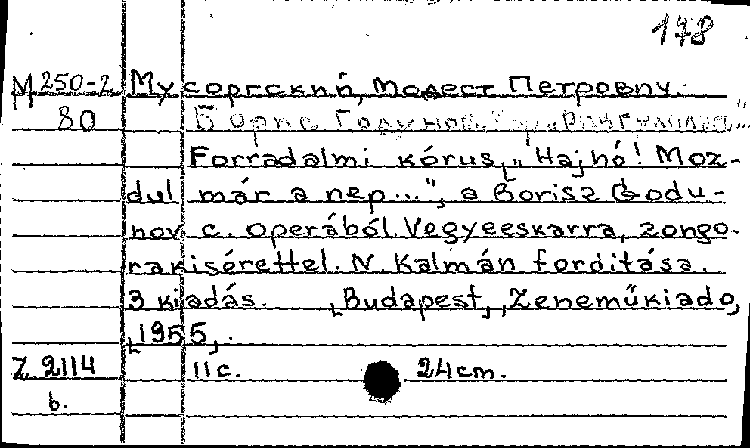 178
М 250-2 Мусоргский, Модест Петрович.
80 Борис Годунов. Хор „
Forradalmi kórus, „Hajhó! Moz-
dul már a nép...", a Borisz Godu-
nov c. operából. Vegyeeskarra, zongo-
rakisérettel. N. Kalmán forditása.
3 kiadás. [Budapest], Zeneműkiado,
[1955].
Z 2114 11 c. 24 cm.
b.